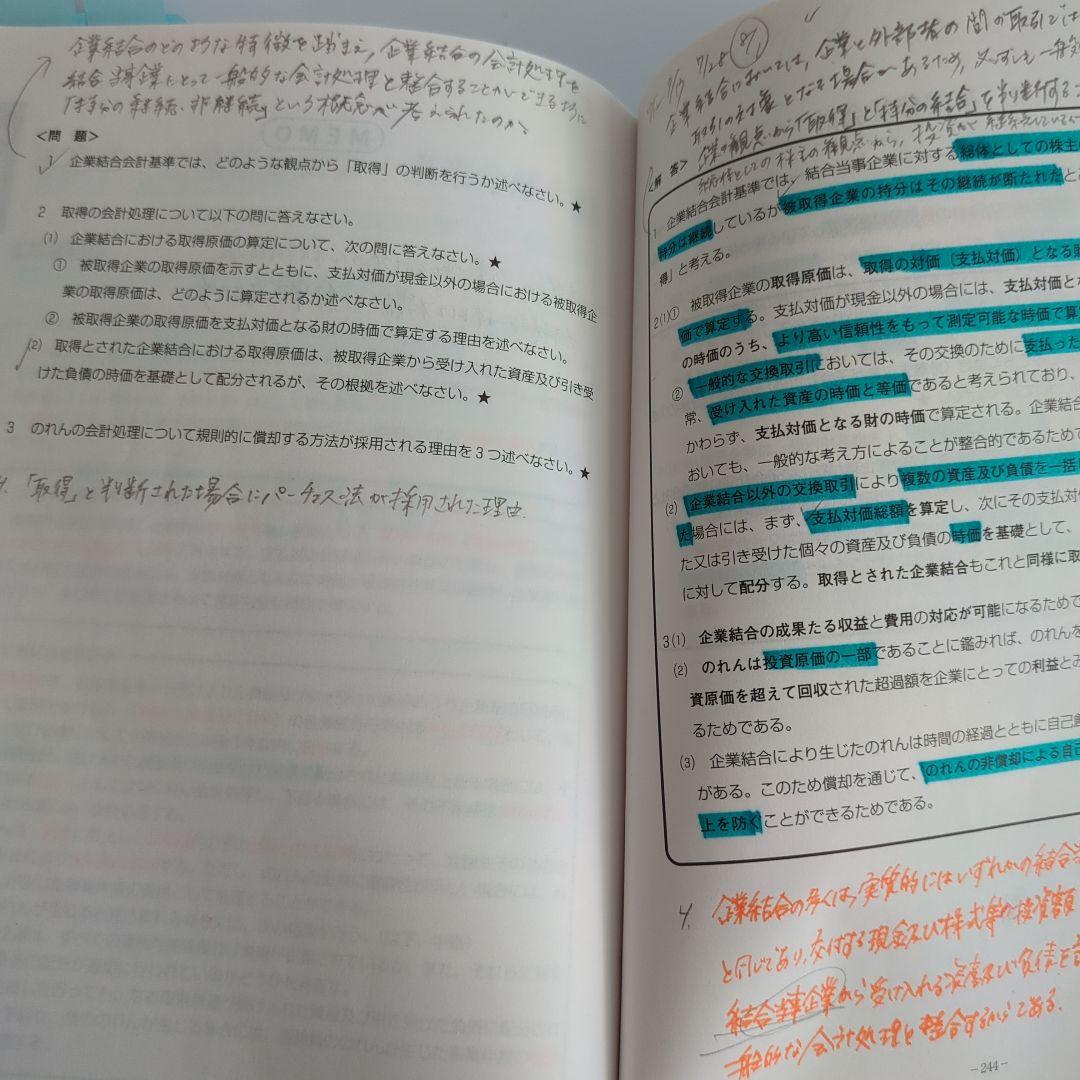 企業結合のどのような特徴を踏まえ、企業結合の会計処理を
結合当事企業にとって一般的な会計処理と整合することができるように
「持分の継続、非継続」という概念が考えられたのか
<問 題>
1 企業結合会計基準では、どのような観点から「取得」の判断を行うか述べなさい。★
2 取得の会計処理について以下の問に答えなさい。
(1) 企業結合における取得原価の算定について、次の問に答えなさい。★
① 被取得企業の取得原価を示すとともに、支払対価が現金以外の場合における被取得企
業の取得原価は、どのように算定されるか述べなさい。
② 被取得企業の取得原価を支払対価となる財の時価で算定する理由を述べなさい。
(2) 取得とされた企業結合における取得原価は、被取得企業から受け入れた資産及び引き受
けた負債の時価を基礎として配分されるが、その根拠を述べなさい。★
3 のれんの会計処理について規則的に償却する方法が採用される理由を3つ述べなさい。★
4. 「取得」と判断された場合にパーチェス法が採用された理由.
MEMO
7/28 8/1
企業結合においては、企業と外部者の間の取引では
取引の対象となる場合があるため、必ずしも一般
企業の観点から「取得」と「持分の結合」を判断するこ
総体としての株主の観点から、投資が継続してい
<解 答>
1 企業結合会計基準では、結合当事企業に対する総体としての株主の
持分は継続しているが被取得企業の持分はその継続が断たれたと
得」と考える。
2(1)① 被取得企業の取得原価は、取得の対価(支払対価)となる財
価で算定する。支払対価が現金以外の場合には、支払対価と
の時価のうち、より高い信頼性をもって測定可能な時価で算
② 一般的な交換取引においては、その交換のために支払った
常、受け入れた資産の時価と等価であると考えられており、
かわらず、支払対価となる財の時価で算定される。企業結合
おいても、一般的な考え方によることが整合的であるためで
(2) 企業結合以外の交換取引により複数の資産及び負債を一括
た場合には、まず、支払対価総額を算定し、次にその支払対
た又は引き受けた個々の資産及び負債の時価を基礎として、
に対して配分する。取得とされた企業結合もこれと同様に取
3(1) 企業結合の成果たる収益と費用の対応が可能になるためで
(2) のれんは投資原価の一部であることに鑑みれば、のれんを
資原価を超えて回収された超過額を企業にとっての利益とみ
るためである。
(3) 企業結合により生じたのれんは時間の経過とともに自己
がある。このため償却を通じて、のれんの非償却による自己
上を防ぐことができるためである。
4. 企業結合の多くは、実質的にはいずれかの結合当
と同じであり、交付する現金及び株式等の投資額
結合当事企業から受け入れる資産及び負債を
一般的な会計処理と整合するからである.
-244-